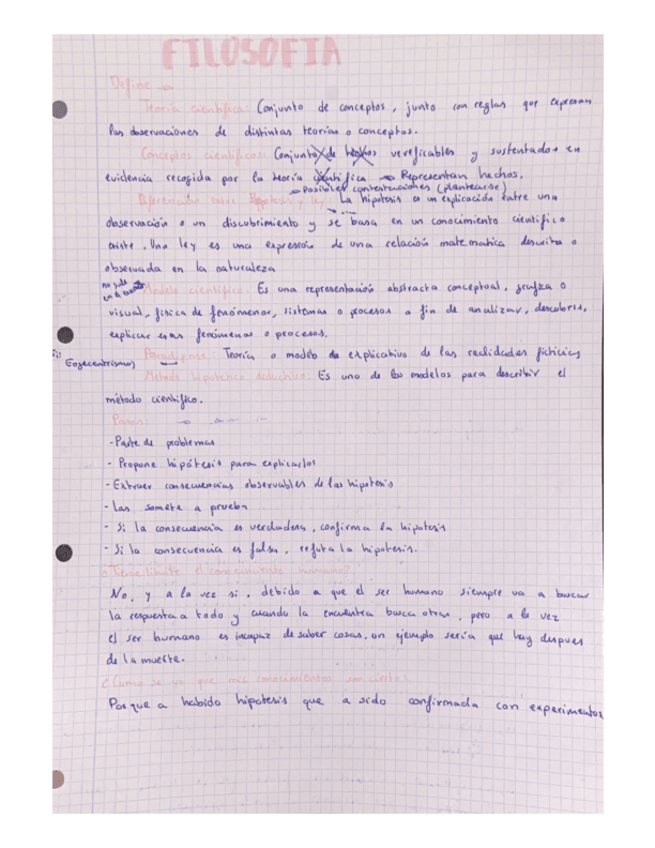 FILOSOFIA
Define
Teoría científica: Conjunto de conceptos, junto con reglas que expresan
las observaciones de distintas teorías o conceptos.
Conceptos científicos: Conjunto de hechos vereficables y sustentados en
evidencia recogida por la teoría científica → Representan hechos.
→ Posibles contestaciones (plantearse)
Diferencias entre hipotesis y ley: La hipótesis es un explicación entre una
observación o un discubrimiento y se basa en un conocimiento científico
existe. Una ley es una expresión de una relación matematica descrita o
observada en la naturaleza
Modelo científico: Es una representación abstracta conceptual, grafica o
visual, fisica de fenómenos, sistemas o procesos a fin de analizar, describir,
explicar esas fenómenos o procesos.
Paradigma: Teoría o modelo de explicativo de las realidades físicas
Método hipotético deductivo: Es uno de los modelos para describir el
método científico.
Pasos:
- Parte de problemas
- Propone hipótesis para explicarlos
- Extraer consecuencias observables de las hipotesis
- Las somete a prueba
- Si la consecuencia es verdadera, confirma la hipotesis
- Si la consecuencia es falsa, refuta la hipotesis.
¿Tiene limite el conocimiento humano?
No, y a la vez si, debido a que el ser humano siempre va a buscar
la respuesta a todo y cuando la encuentra busca otras, pero a la vez
el ser humano es incapaz de saber cosas, un ejemplo seria que hay despues
de la muerte.
¿Como se yo que mis conocimientos son ciertos?
Porque a habido hipotesis que a sido confirmada con experimentos